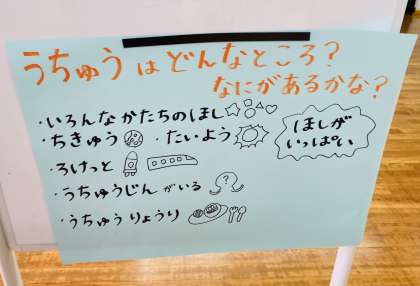 うちゅうはどんなところ？
なにがあるかな？
・いろんなかたちのほし
・ちきゅう ・たいよう
・ろけっと
・うちゅうじんがいる
?
・うちゅうりょうり
ほしが
いっぱい